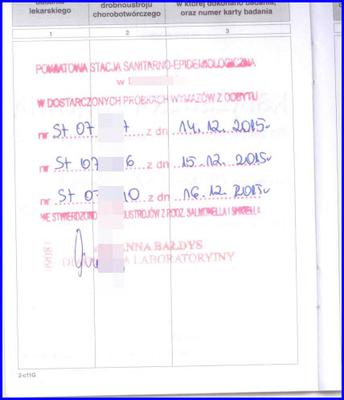 lekarskiego
drobnoustroju
chorobotwórczego
w której dokonano badania,
oraz numer karty badania
1 2 3
POWIATOWA STACJA SANITARNO-EPIDEMIOLOGICZNA
w
W DOSTARCZONYCH PRÓBKACH WYMAZÓW Z ODBYTU
nr St 07 7 z dn 14.12.2015r
nr St 07 6 z dn 15.12.2015r
nr St 07 10 z dn 16.12.2015r
NIE STWIERDZONO USTROJÓW Z RODZ. SALMONELLA I SHIGELLA
ANNA BAŁDYS
LABORATORYJNY
2-c11G